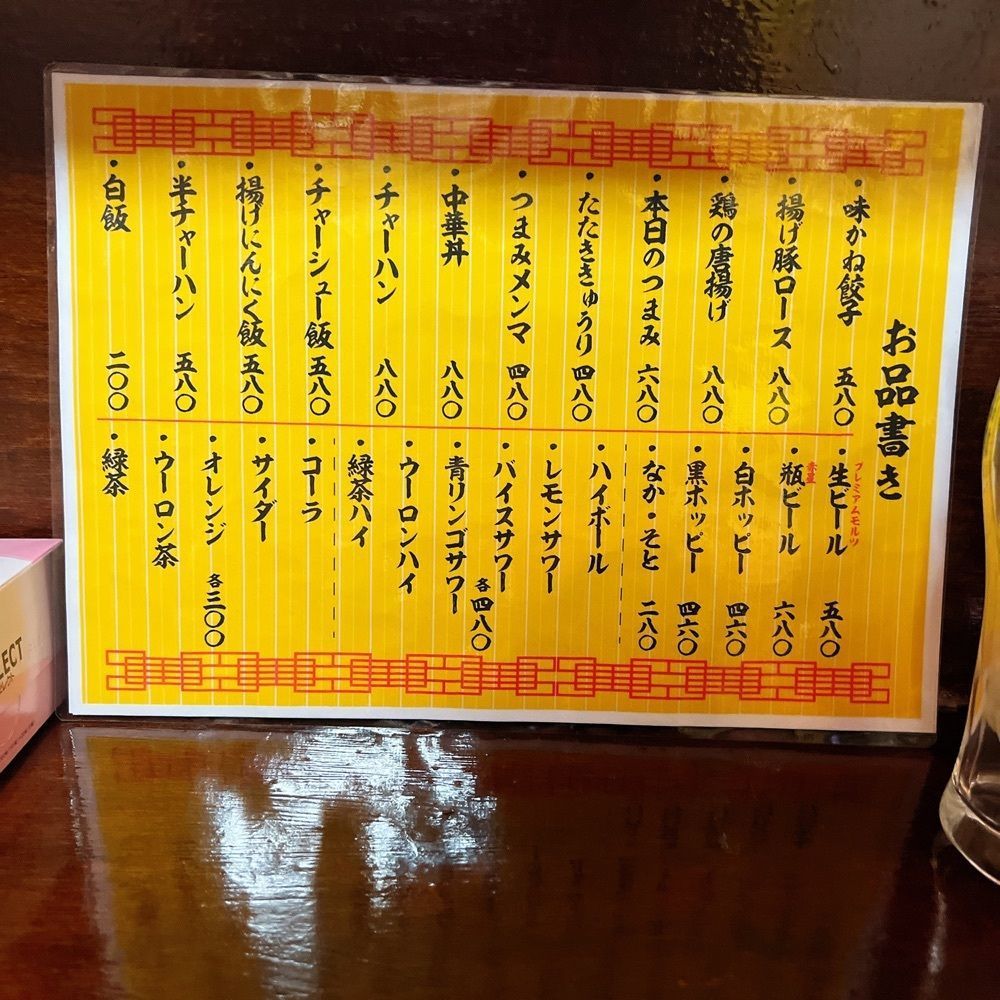 お品書き
・味かね餃子 五八〇
・揚げ豚ロース 八八〇
・鶏の唐揚げ 八八〇
・本日のつまみ 六八〇
・たたききゅうり 四八〇
・つまみメンマ 四八〇
・中華丼 八八〇
・チャーハン 八八〇
・チャーシュー飯 五八〇
・揚げにんにく飯 五八〇
・半チャーハン 五八〇
・白飯 二〇〇
プレミアムモルツ
・生ビール 五八〇
赤星
・瓶ビール 六八〇
・白ホッピー 四六〇
・黒ホッピー 四六〇
・なか・そと 二八〇
・ハイボール
・レモンサワー
・バイスサワー
・青リンゴサワー 各四八〇
・ウーロンハイ
・緑茶ハイ
・コーラ
・サイダー
・オレンジ 各三〇〇
・ウーロン茶
・緑茶
LECT